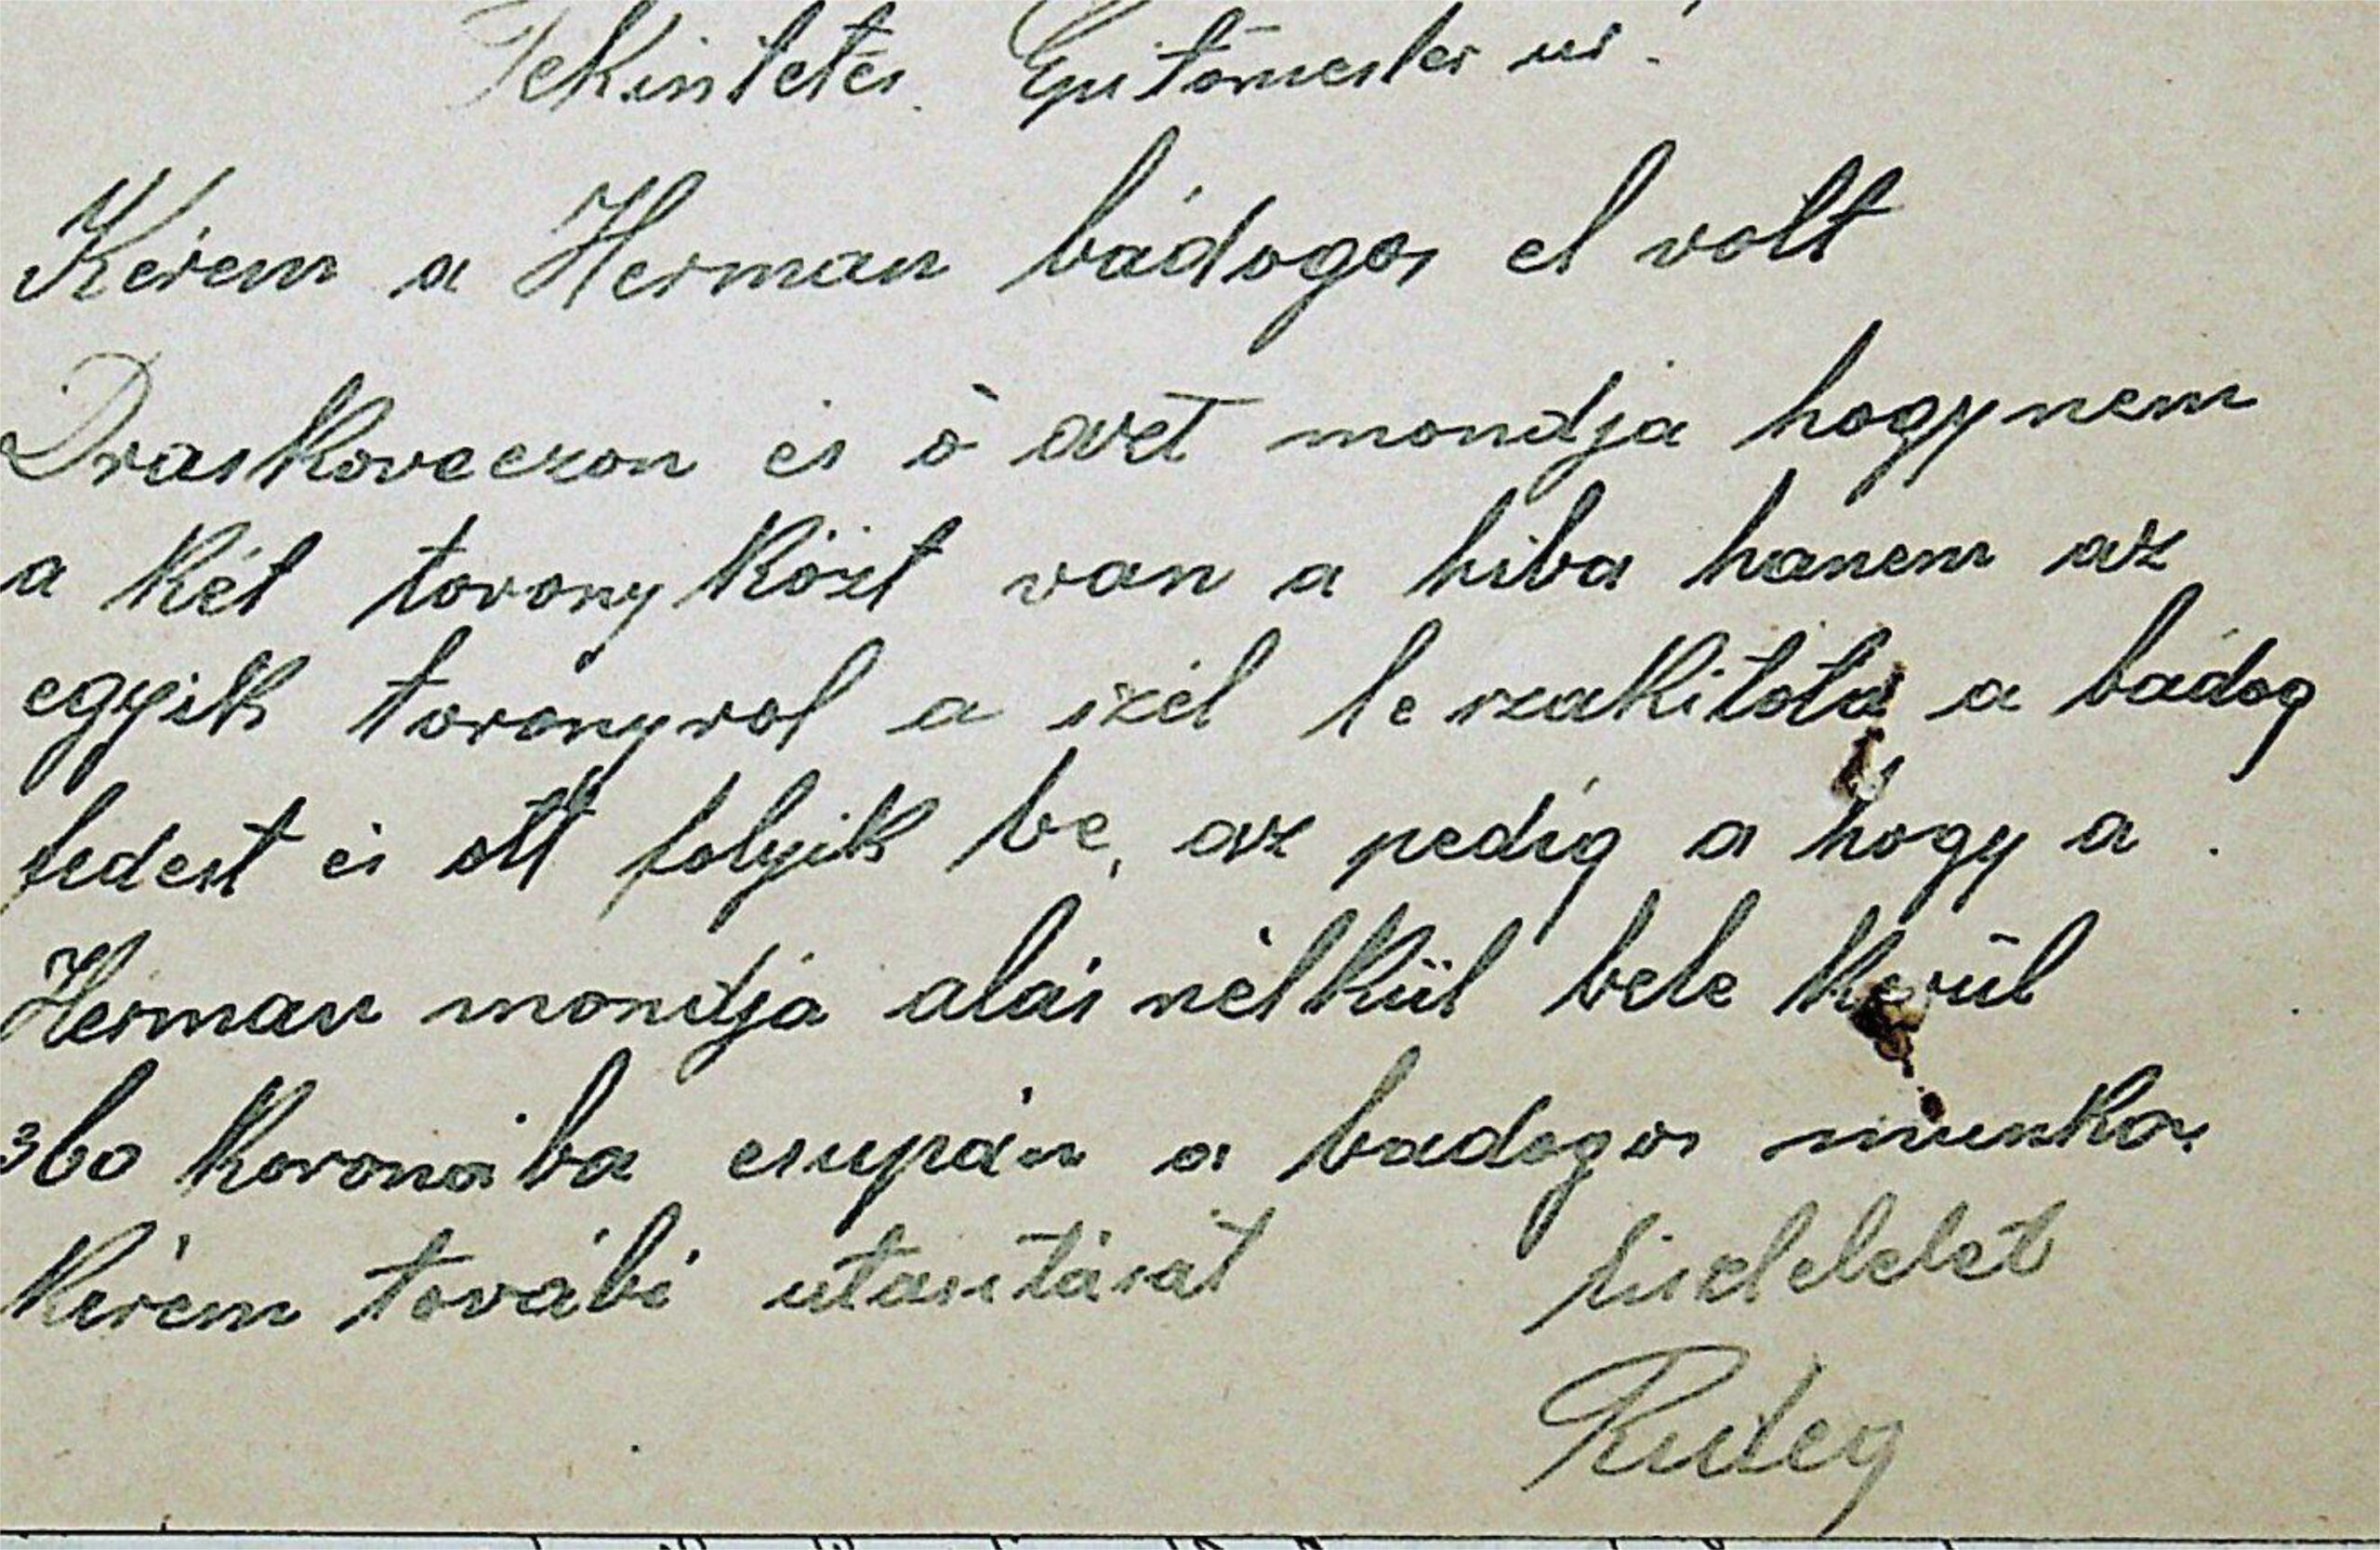 Tekintetes Epitőmester ur!
Kérem a Herman bádogos el volt
Draskoveczon és ő azt mondja hogy nem
a két torony közt van a hiba hanem az
egyik toronyrol a szél le szakitotta a bádog
fedest és ott folyik be, az pedig a hogy a
Herman mondja alás nélkül bele kerül
360 koronába csupán a badogos munka.
Kérem továbi utasitását tisztelelet